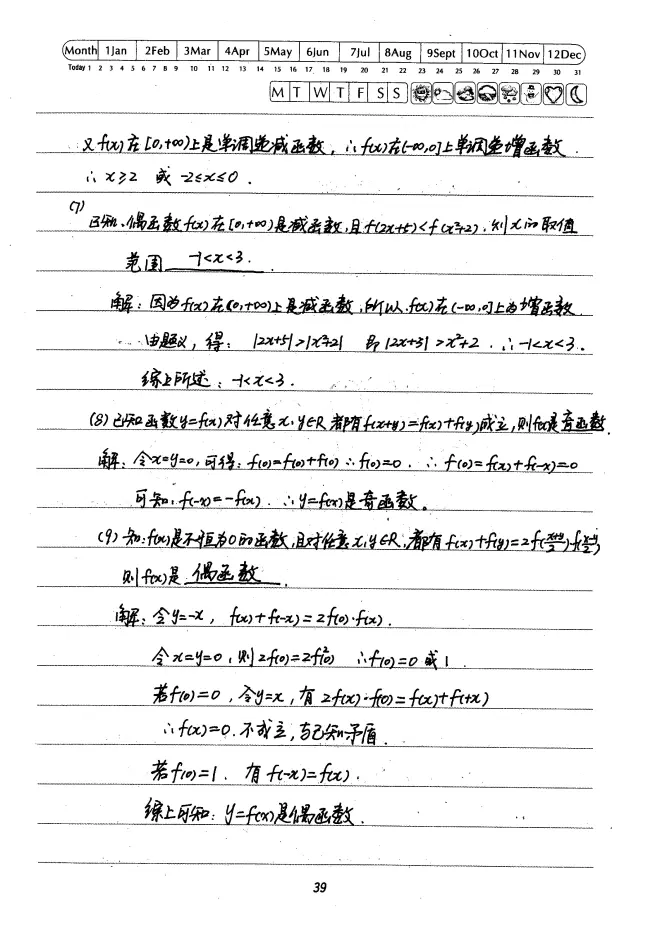 Month 1Jan 2Feb 3Mar 4Apr 5May 6Jun 7Jul 8Aug 9Sept 10Oct 11Nov 12Dec
Today 1 2 3 4 5 6 7 8 9 10 11 12 13 14 15 16 17 18 19 20 21 22 23 24 25 26 27 28 29 30 31
M T W T F S S
又f(x)在[0,+∞)上是单调递减函数, ∴f(x)在(-∞,0]上单调递增函数.
∴ x≥2 或 -2≤x≤0.
(7)
已知、偶函数f(x)在[0,+∞)是减函数,且f(2x+5)<f(x²+2),则x的取值
范围 -1<x<3.
解:因为f(x)在(0,+∞)上是减函数,所以f(x)在(-∞,0]上为增函数
由题义,得: |2x+5|>|x²+2| 即 |2x+5|>x²+2. ∴-1<x<3.
综上所述:-1<x<3.
(8)已知函数y=f(x)对任意x、y∈R都有f(x+y)=f(x)+f(y)成立,则f(x)是奇函数.
解:令x=y=0,可得:f(0)=f(0)+f(0) ∴f(0)=0. ∴f(0)=f(x)+f(-x)=0
可知:f(-x)=-f(x). ∴y=f(x)是奇函数。
(9)知:f(x)是不恒为0的函数,且对任意x,y∈R,都有f(x)+f(y)=2f(\frac{x+y}{2})·f(\frac{x-y}{2})
则f(x)是 偶函数.
解:令y=-x, f(x)+f(-x)=2f(0)·f(x).
令x=y=0,则2f(0)=2f²(0) ∴f(0)=0或1.
若f(0)=0,令y=x,有2f(x)·f(0)=f(x)+f(+x)
∴f(x)=0.不成立,与已知矛盾.
若f(0)=1. 有f(-x)=f(x).
综上可知:y=f(x)是偶函数.
39